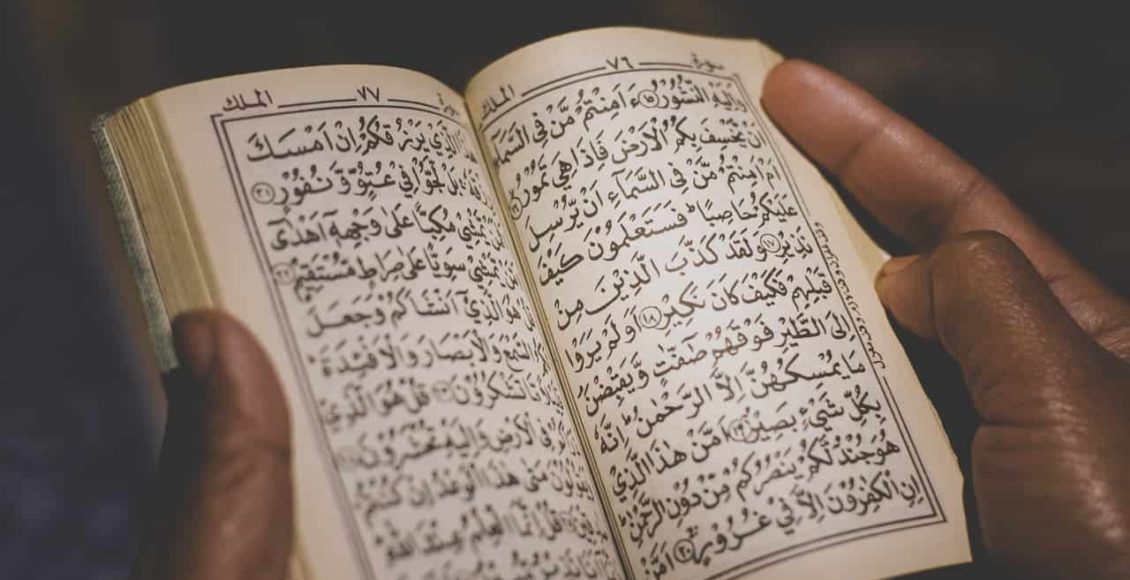 سورة ٧٦ الملك
وَاِلَيْهِ النُّشُوْرُ ١٥ ءَاَمِنْتُمْ مَّنْ فِي السَّمَآءِ
اَنْ يَّخْسِفَ بِكُمُ الْاَرْضَ فَاِذَا هِيَ تَمُوْرُ ١٦
اَمْ اَمِنْتُمْ مَّنْ فِي السَّمَآءِ اَنْ يُّرْسِلَ
عَلَيْكُمْ حَاصِبًا ؕ فَسَتَعْلَمُوْنَ كَيْفَ
نَذِيْرِ ١٧ وَلَقَدْ كَذَّبَ الَّذِيْنَ مِنْ
قَبْلِهِمْ فَكَيْفَ كَانَ نَكِيْرِ ١٨ اَوَلَمْ يَرَوْا
اِلَى الطَّيْرِ فَوْقَهُمْ صٰٓفّٰتٍ وَّيَقْبِضْنَ
مَا يُمْسِكُهُنَّ اِلَّا الرَّحْمٰنُ ؕ اِنَّهٗ
بِكُلِّ شَيْءٍ بَصِيْرٌ ١٩ اَمَّنْ هٰذَا الَّذِيْ
هُوَ جُنْدٌ لَّكُمْ يَنْصُرُكُمْ مِّنْ دُوْنِ الرَّحْمٰنِ ؕ
اِنِ الْكٰفِرُوْنَ اِلَّا فِيْ غُرُوْرٍ ٢٠ اَمَّنْ
سورة ٧٧ الملك
هٰذَا الَّذِيْ يَرْزُقُكُمْ اِنْ اَمْسَكَ
رِزْقَهٗ ۚ بَلْ لَّجُّوْا فِيْ عُتُوٍّ وَّنُفُوْرٍ ٢١
اَفَمَنْ يَّمْشِيْ مُكِبًّا عَلٰى وَجْهِهٖٓ اَهْدٰٓى
اَمَّنْ يَّمْشِيْ سَوِيًّا عَلٰى صِرَاطٍ مُّسْتَقِيْمٍ ٢٢
قُلْ هُوَ الَّذِيْٓ اَنْشَاَكُمْ وَجَعَلَ
لَكُمُ السَّمْعَ وَالْاَبْصَارَ وَالْاَفْئِدَةَ ؕ
قَلِيْلًا مَّا تَشْكُرُوْنَ ٢٣ قُلْ هُوَ الَّذِيْ
ذَرَاَكُمْ فِي الْاَرْضِ وَاِلَيْهِ تُحْشَرُوْنَ ٢٤
وَيَقُوْلُوْنَ مَتٰى هٰذَا الْوَعْدُ اِنْ كُنْتُمْ
صٰدِقِيْنَ ٢٥ قُلْ اِنَّمَا الْعِلْمُ عِنْدَ اللّٰهِ